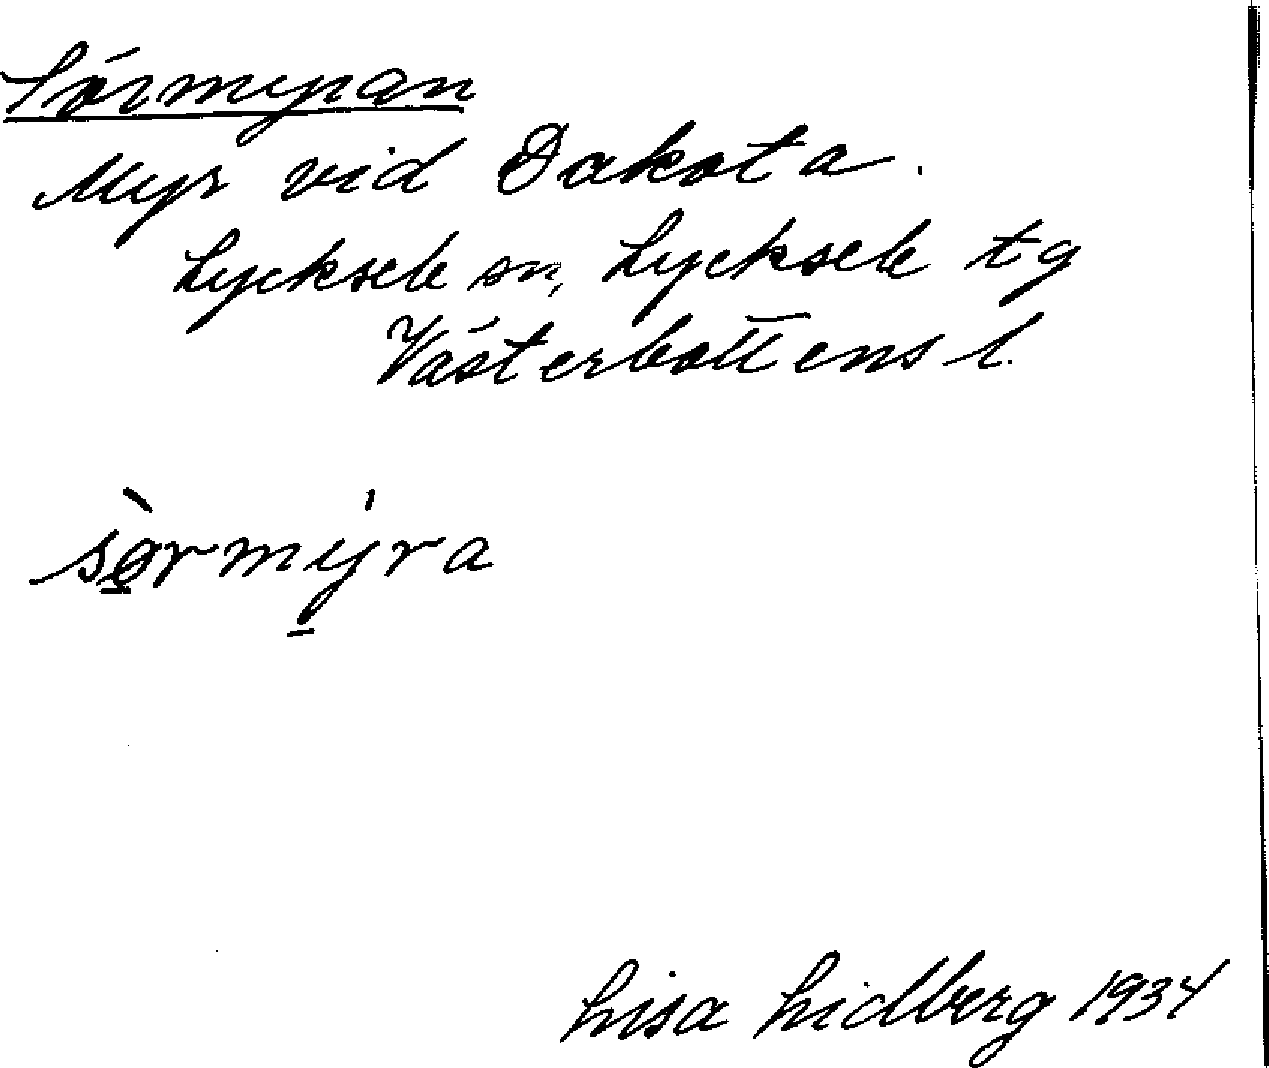 Sörmyran
Myr vid Dakota.
Lycksele sn, Lycksele tg
Västerbottens l.
sørmyra
Lisa Lidberg 1934